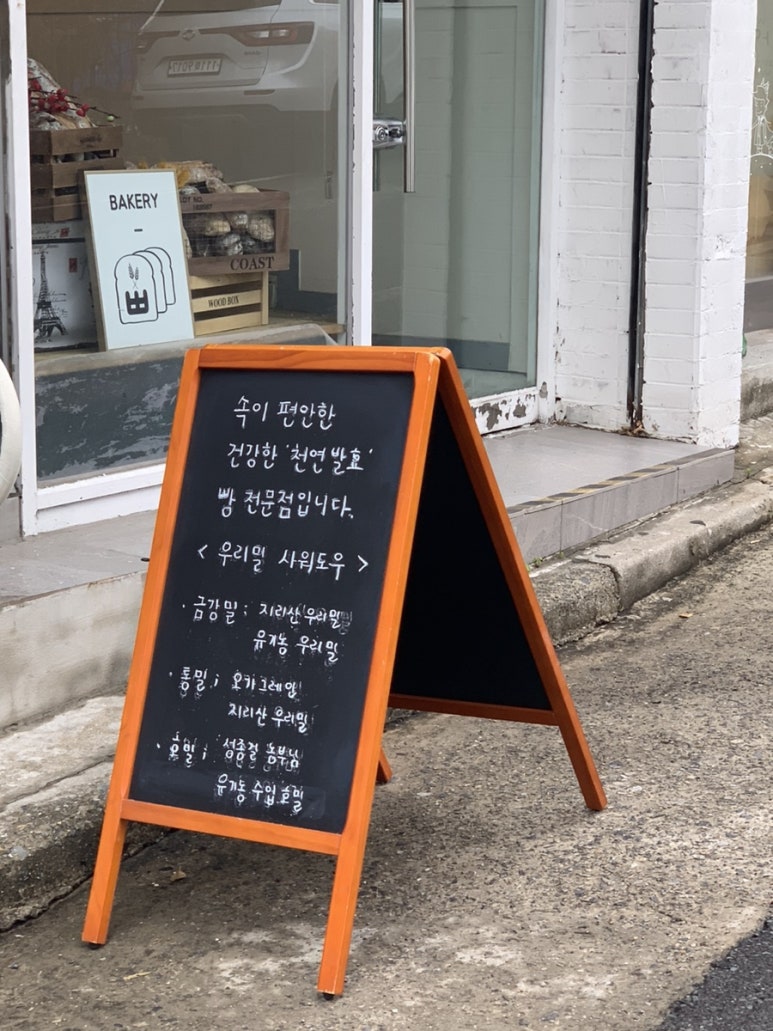 BAKERY
COAST
WOOD BOX
속이 편안한
건강한 '천연발효'
빵 전문점입니다.
< 우리밀 사워도우 >
· 금강밀 ; 지리산 우리밀
유기농 우리밀
· 통밀 ; 오카그레인
지리산 우리밀
· 호밀 ; 성종걸 농부님
유기농 수입 호밀